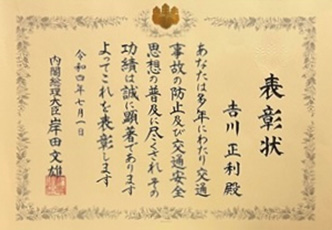 表彰状
吉川正利殿
あなたは多年にわたり交通
事故の防止及び交通安全
思想の普及に尽くされその
功績は誠に顕著であります
よってこれを表彰します
令和四年七月一日
内閣総理大臣 岸田文雄